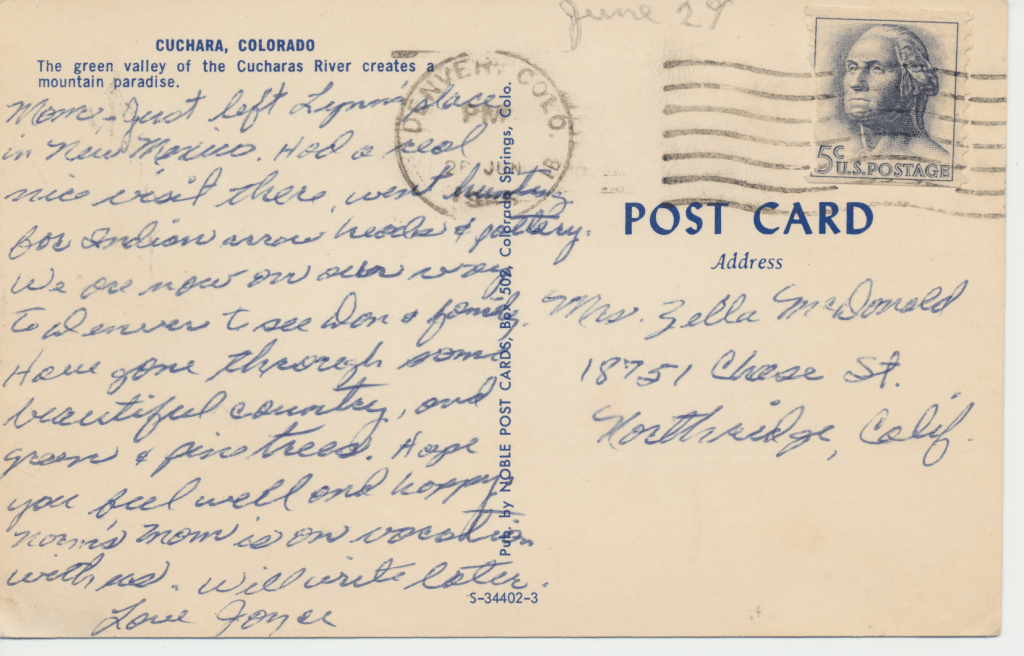 June 29
CUCHARA, COLORADO
The green valley of the Cucharas River creates a
mountain paradise.
Mom - Just left Lynn's place
in New Mexico. Had a real
nice visit there, went hunting
for Indian arrow heads & pottery.
We are now on our way
to Denver to see Don & family.
Have gone through some
beautiful country, and
green & pine trees. Hope
you feel well and happy
Norm's Mom is on vacation
with us. Will write later.
Love Joyce
Pub. by NOBLE POST CARDS, Box 502, Colorado Springs, Colo.
S-34402-3
DENVER, COLO.
PM
JUN
5c
U.S. POSTAGE
POST CARD
Address
Mrs. Zella McDonald
18751 Chase St.
Northridge, Calif.